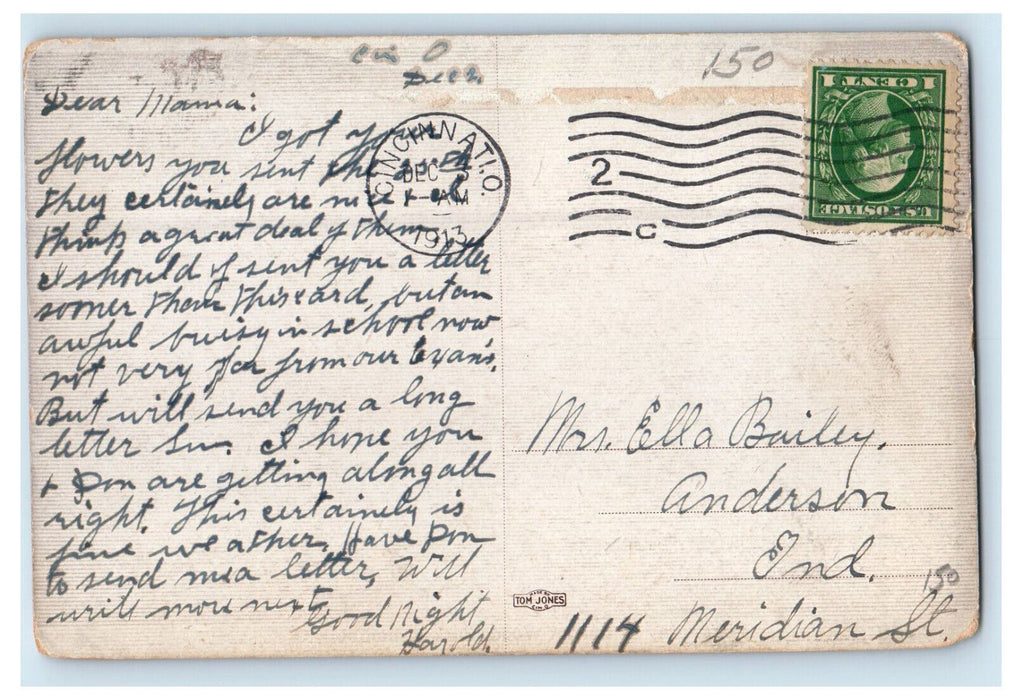 Cin O
Dec
150
Dear Mama:
I got your
flowers you sent the
They certainely are nice &
think a great deal of them
I should of sent you a letter
sooner than this card, but am
awful buisy in school now
not very far from our Exan's.
But will send you a long
letter Sun. I hope you
+ Don are getting along all
right. This certainely is
fine weather, Have Don
to send me a letter, Will
write more next
Good Night
Harold.
CINCINNATI, O.
DEC
AM
1913
2
C
1 CENT 1
U.S. POSTAGE
Mrs. Ella Bailey,
Anderson
Ind.
150
1114 Meridian St.
MADE BY
TOM JONES
CIN. O.